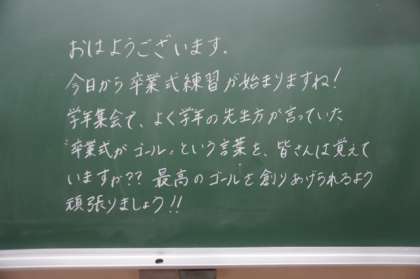 おはようございます.
今日から卒業式練習が始まりますね!
学年集会で、よく学年の先生方が言っていた
"卒業式がゴール"という言葉を、皆さんは覚えて
いますか?? 最高のゴールを創りあげられるよう
頑張りましょう!!